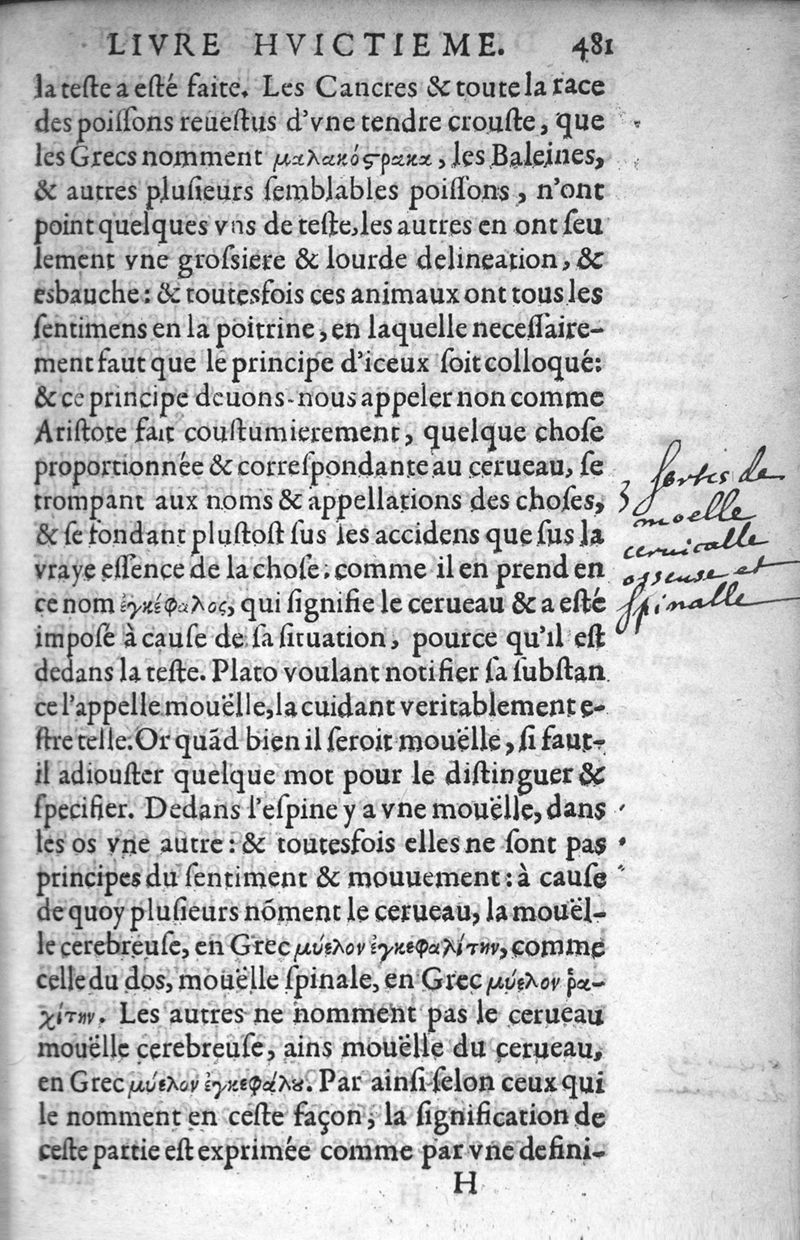 LIVRE HVICTIEME. 481
la teſte a eſté faite. Les Cancres & toute la race
des poiſſons reueſtus d'vne tendre crouſte, que
les Grecs nomment μαλακόϛρακα, les Baleines,
& autres pluſieurs ſemblables poiſſons, n'ont
point quelques vns de teſte, les autres en ont ſeu
lement vne groſsiere & lourde delineation, &
esbauche: & toutesfois ces animaux ont tous les
ſentimens en la poitrine, en laquelle neceſſaire-
ment faut que le principe d'iceux ſoit colloqué:
& ce principe deuons-nous appeler non comme
Ariſtote fait couſtumierement, quelque choſe
proportionnée & correſpondante au cerueau, ſe
trompant aux noms & appellations des choſes,
& ſe fondant pluſtoſt ſus les accidens que ſus la
vraye eſſence de la choſe: comme il en prend en
ce nom ἐγκέφαλος, qui ſignifie le cerueau & a eſté
impoſé à cauſe de ſa ſituation, pource qu'il eſt
dedans la teſte. Plato voulant notifier ſa ſubſtan
ce l'appelle mouëlle, la cuidant veritablement e-
ſtre telle. Or quãd bien il ſeroit mouëlle, ſi faut-
il adiouſter quelque mot pour le diſtinguer &
ſpecifier. Dedans l'eſpine y a vne mouëlle, dans
les os vne autre: & toutesfois elles ne ſont pas
principes du ſentiment & mouuement: à cauſe
de quoy pluſieurs nõment le cerueau, la mouël-
le cerebreuſe, en Grec μύελον ἐγκεφαλίτην, comme
celle du dos, mouëlle ſpinale, en Grec μύελον ῥα-
χίτην. Les autres ne nomment pas le cerueau
mouëlle cerebreuſe, ains mouëlle du cerueau,
en Grec μύελον ἐγκεφάλȣ. Par ainſi ſelon ceux qui
le nomment en ceſte façon, la ſignification de
ceſte partie eſt exprimée comme par vne defini-
H
3 ſortes de
moelle
ceruicalle
osseuse et
ſpinalle